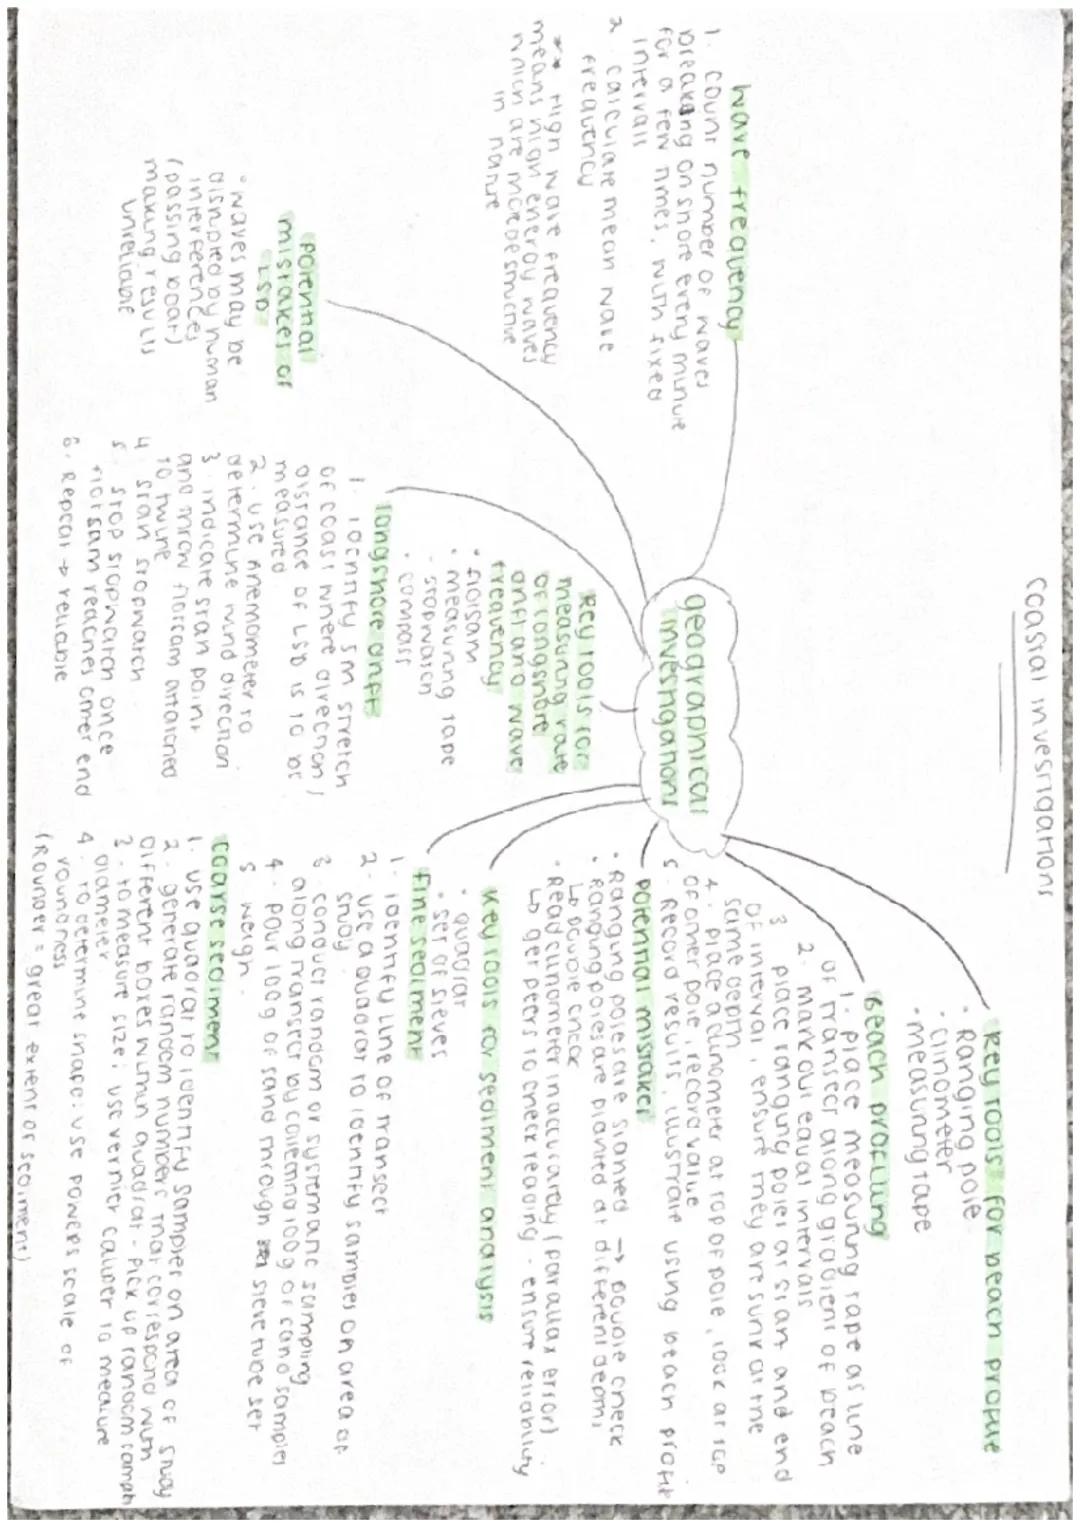 coastal investigations
geographical
investigations
wave frequency
1. count number of waves
breaking on shore every minute
for a few times, with fixed
intervals
2. calculate mean wave
frequency
** High wave frequency
means high energy waves
which are more destructive
in nature
potential
mistakes of
LSD?
• waves may be
disrupted by human
interferences
(passing boat)
making results
unreliable
Key tools for
measuring rate
of longshore
drift and wave
frequency
• flotsam
• measuring tape
• stopwatch
• compass
longshore drift
1. identify 5m stretch
of coast where direction/
distance of LSD is to be
measured
2. use anemometer to
determine wind direction
3. indicate start point
and throw flotsam attatched
to twine
4. start stopwatch
5. stop stopwatch once
flotsam reaches other end
6. Repeat → reliable
Key tools for beach profile
• Ranging pole
• clinometer
• measuring tape
Beach profiling
1. place measuring tape as line
of transect along gradient of beach
2. mark out equal intervals
3. place ranging poles at start and end
of interval, ensure they are sunk at the
same depth
4. place a clinometer at top of pole, look at top
of other pole, record value
5. Record results, illustrate using beach profile
potential mistakes
• Ranging poles are slanted → double check
• Ranging poles are planted at different depths
↳ double check
• Read clinometer inaccurately (parallax error)
↳ get peers to check reading. ensure reliability
Key tools for sediment analysis
• quadrat
• set of sieves
fine sediment
1. identify line of transect
2. use a quadrat to identity samples on area of
study
3. conduct random or systematic sampling
along transect by collecting 100g of sand samples
4. pour 100g of sand through sieve tube set
5 weigh.
coarse sediment
1. use quadrat to identify samples on area of study
2. generate random numbers that correspond with
different boxes within quadrat. Pick up random sample
3. to measure size: use vernier caliper to measure
diameter
4. to determine shape: use powers scale of
roundness
(Rounder = great extent of sediment)